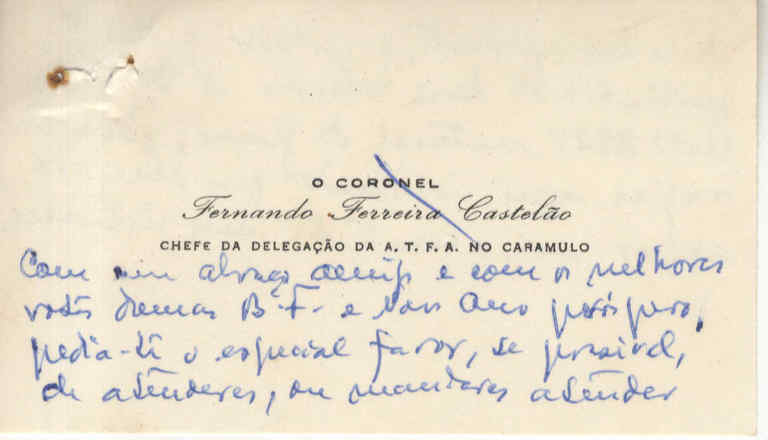 O CORONEL
Fernando Ferreira Castelão
CHEFE DA DELEGAÇÃO DA A. T. F. A. NO CARAMULO
Com um abraço amigo e com os melhores
votos dumas B. F. e Novo Ano próspero,
pedia-te o especial favor, se possível,
de atenderes, ou mandares atender